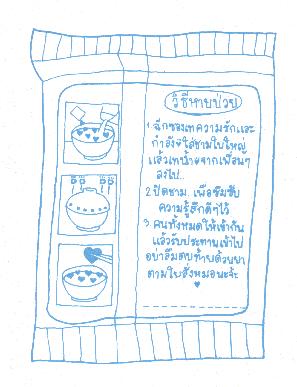 วิธีหายป่วย
1. ฉีกซองเทความรักและ
กำลังใจใส่ชามใบใหญ่
แล้วเทน้ำใจจากเพื่อนๆ
ลงไป..
2. ปิดชาม เพื่อซึมซับ
ความรู้สึกดีๆไว้
3. คนทั้งหมดให้เข้ากัน
แล้วรับประทานเข้าไป
อย่าลืมตบท้ายด้วยยา
ตามใบสั่งหมอนะจ้ะ